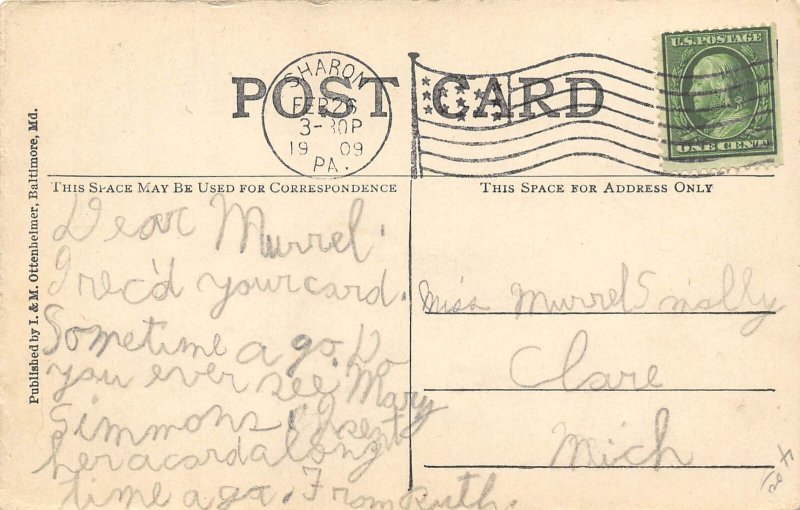 POST CARD
SHARON
FEB 26
3-30P
1909
PA.
U.S. POSTAGE
ONE CENT
THIS SPACE MAY BE USED FOR CORRESPONDENCE
THIS SPACE FOR ADDRESS ONLY
Published by I. & M. Ottenheimer, Baltimore, Md.
Dear Murrel.
I rec'd your card.
Sometime a go. Do
you ever see Mary
Simmons. I sent
her a card a long
time a go. From Ruth.
Miss Murrel
Clare
Mich